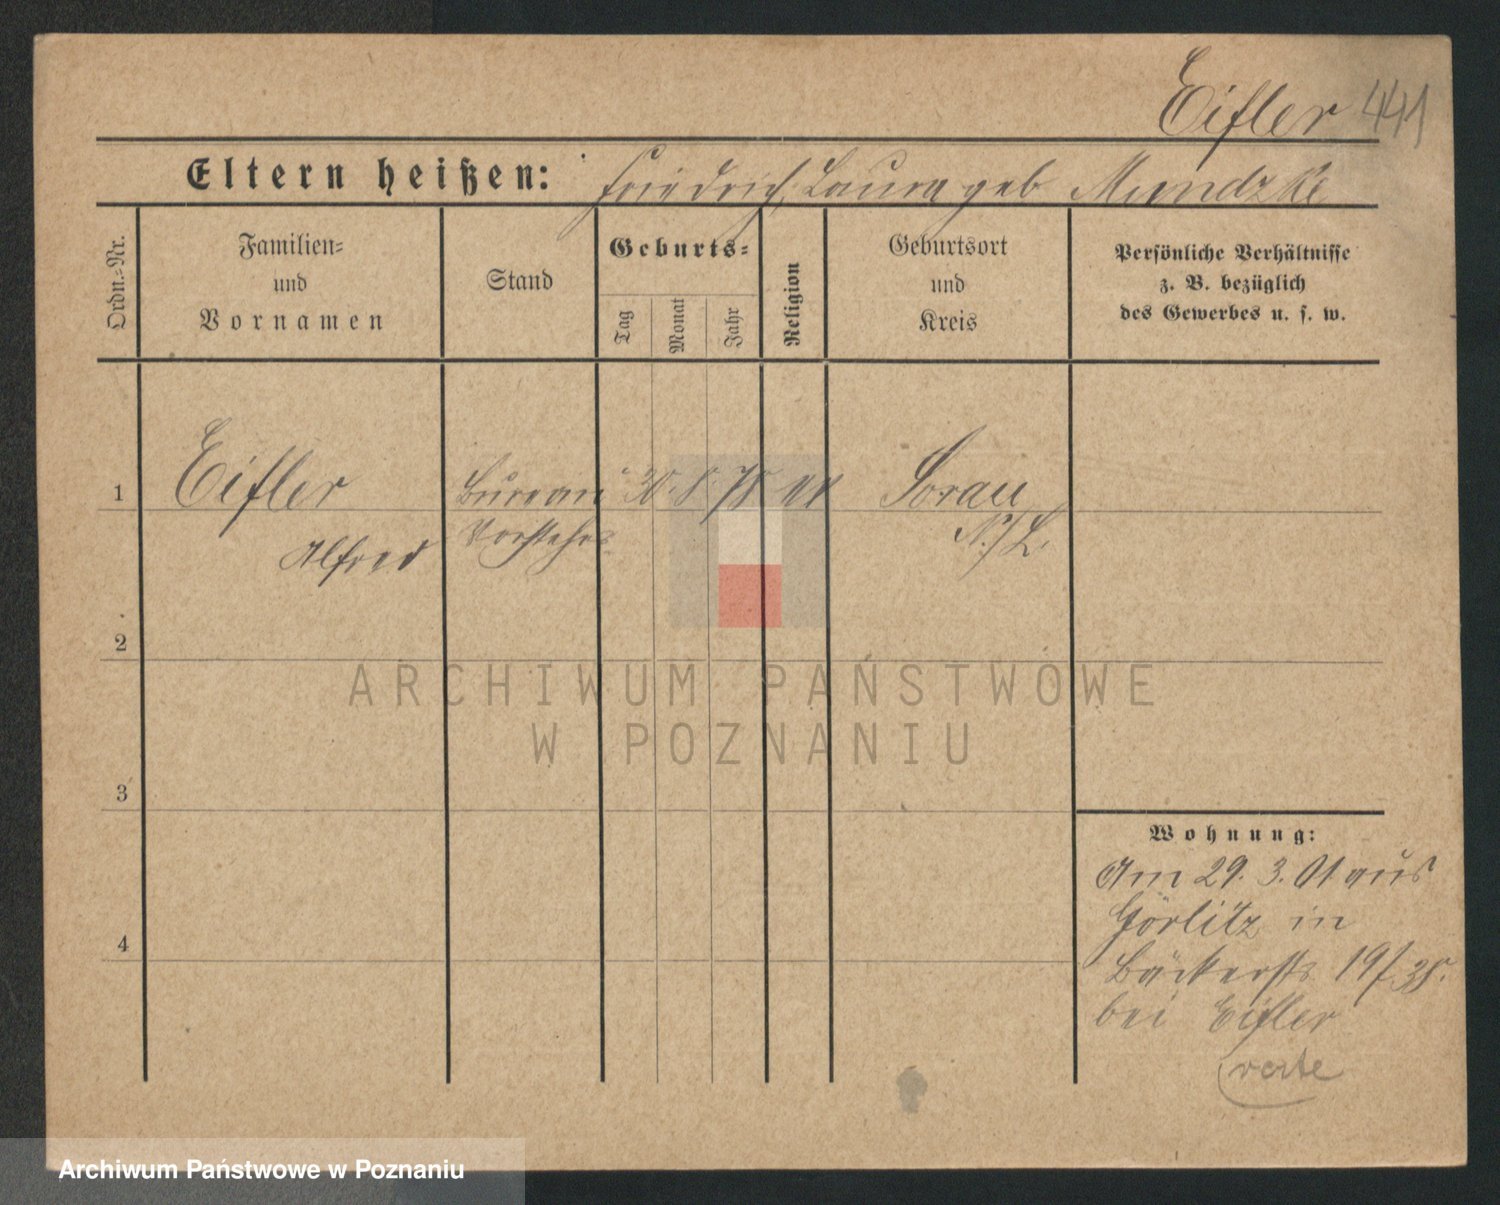 Eifler 441
Eltern heißen: Friedrich, Laura geb Mundzke
Ordn.=Nr.
Familien=
und
Vornamen
Stand
Geburts=
Tag
Monat
Jahr
Religion
Geburtsort
und
Kreis
Persönliche Verhältnisse
z. B. bezüglich
des Gewerbes u. s. w.
1 Eifler Bureau 30. 8. 78 Sorau
Alfred Vorsteher N./L.
2
3
4
Wohnung:
Am 29. 3. 01 aus
Görlitz in
Bäckerstr 19/
bei Eifler
verte
ARCHIWUM PAŃSTWOWE
W POZNANIU
Archiwum Państwowe w Poznaniu